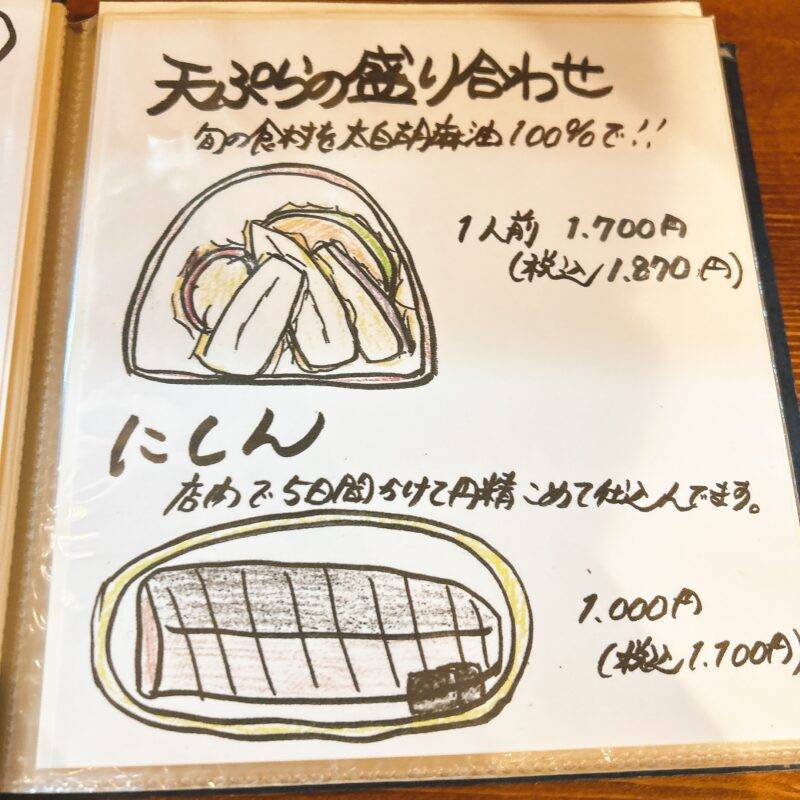 天ぷらの盛り合わせ
旬の食材を太白胡麻油100%で!!
1人前 1.700円
(税込1.870円)
にしん
店内で5日間かけて円精こめて仕込んでます。
1.000円
(税込1.100円)